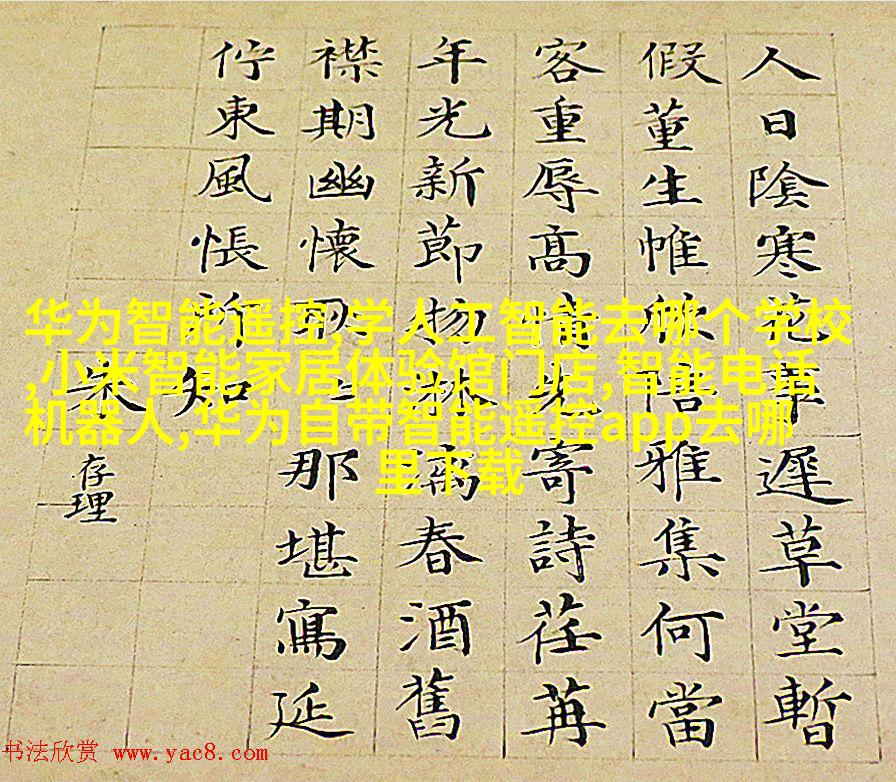 华为智能遥控,学人工智能去哪个学校
,小米智能家居体验馆门店,智能电话
机器人,华为自带智能遥控app去哪
里下载
人日陰寒花事遲草堂暫
假董生帷欣陪雅集何當
客重辱高情先寄詩荏苒
年光新節物淋漓春酒舊
襟期幽懷那堪寫延
佇東風悵柳知
朱
存理
书法欣赏 www.yac8.com